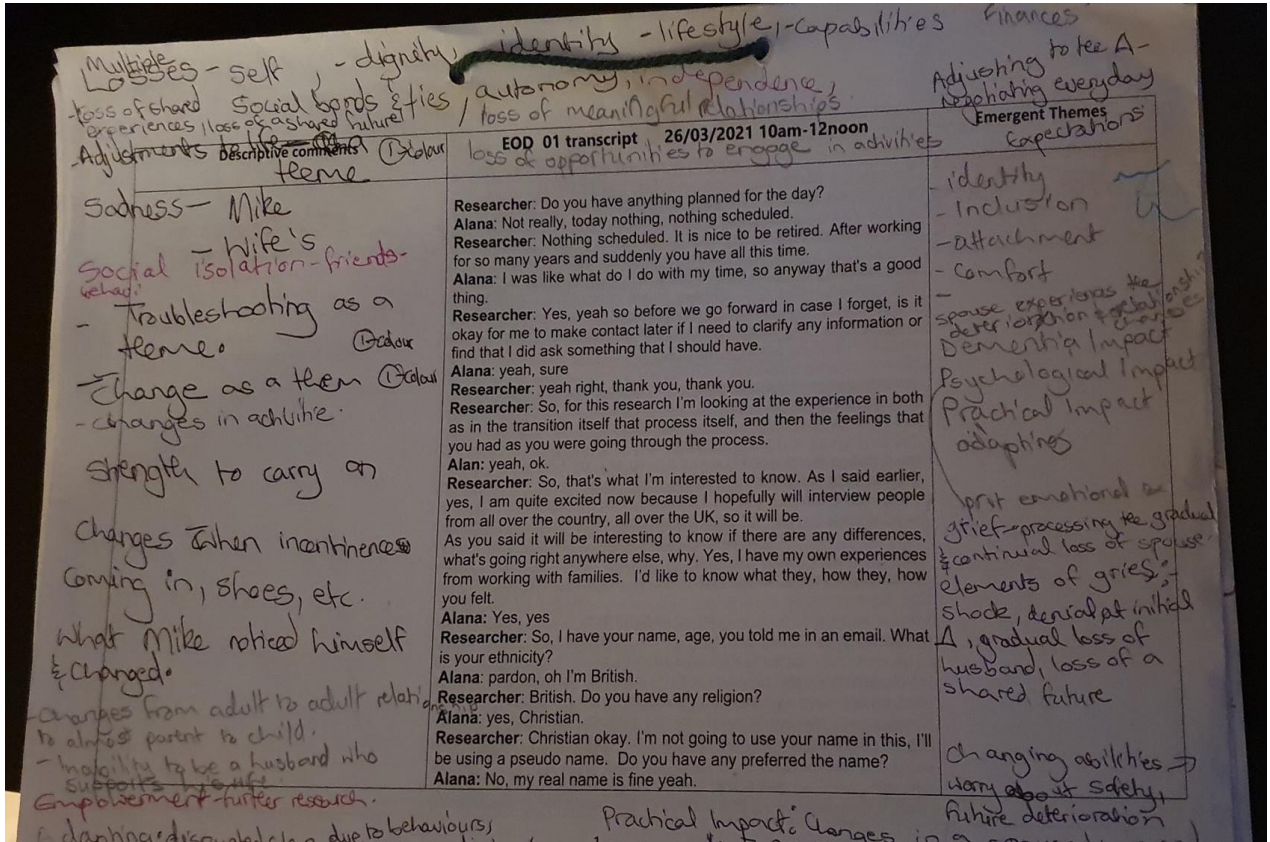 Multiple
Losses - self, - dignity, identity - lifestyle, - capabilities Finances
- loss of shared Social bonds & ties / autonomy, independence,
experiences / loss of a shared future / loss of meaningful relationships
- Adjustments
Adjusting to the
Negotiating everyday
Expectations
Descriptive comments
① colour
theme
EOD 01 transcript 26/03/2021 10am-12noon
loss of opportunities to engage in activities
Emergent Themes
Sadness - Mike
- Wife's
Social isolation - friends -
- Troubleshooting as a
theme.
① colour
- Change as a them ① colour
- changes in activitie.
Strength to carry on
Changes When incontinence
Coming in, shoes, etc.
What Mike noticed himself
& changed.
- Changes from adult to adult relationship
to almost parent to child.
- Inability to be a husband who
supports
Empowerment - further research.
Researcher: Do you have anything planned for the day?
Alana: Not really, today nothing, nothing scheduled.
Researcher: Nothing scheduled. It is nice to be retired. After working
for so many years and suddenly you have all this time.
Alana: I was like what do I do with my time, so anyway that's a good
thing.
Researcher: Yes, yeah so before we go forward in case I forget, is it
okay for me to make contact later if I need to clarify any information or
find that I did ask something that I should have.
Alana: yeah, sure
Researcher: yeah right, thank you, thank you.
Researcher: So, for this research I'm looking at the experience in both
as in the transition itself that process itself, and then the feelings that
you had as you were going through the process.
Alan: yeah, ok.
Researcher: So, that's what I'm interested to know. As I said earlier,
yes, I am quite excited now because I hopefully will interview people
from all over the country, all over the UK, so it will be.
As you said it will be interesting to know if there are any differences,
what's going right anywhere else, why. Yes, I have my own experiences
from working with families. I'd like to know what they, how they, how
you felt.
Alana: Yes, yes
Researcher: So, I have your name, age, you told me in an email. What
is your ethnicity?
Alana: pardon, oh I'm British.
Researcher: British. Do you have any religion?
Alana: yes, Christian.
Researcher: Christian okay. I'm not going to use your name in this, I'll
be using a pseudo name. Do you have any preferred the name?
Alana: No, my real name is fine yeah.
- identity
- Inclusion
- attachment
- Comfort
spouse experiences the
deterioration & relationship
changes
Dementia Impact
Psychological Impact
Practical Impact
emotional
grief - processing the gradual
& continual loss of spouse.
elements of grief; -
shock, denial at initial
Δ, gradual loss of
husband, loss of a
shared future
Changing abilities →
worry about safety,
future deterioration
due to behaviours,
Practical Impact: Changes in a